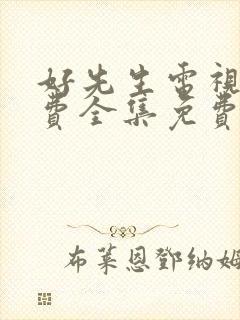 好先生電視
費全集免費
布萊恩鄧納姆